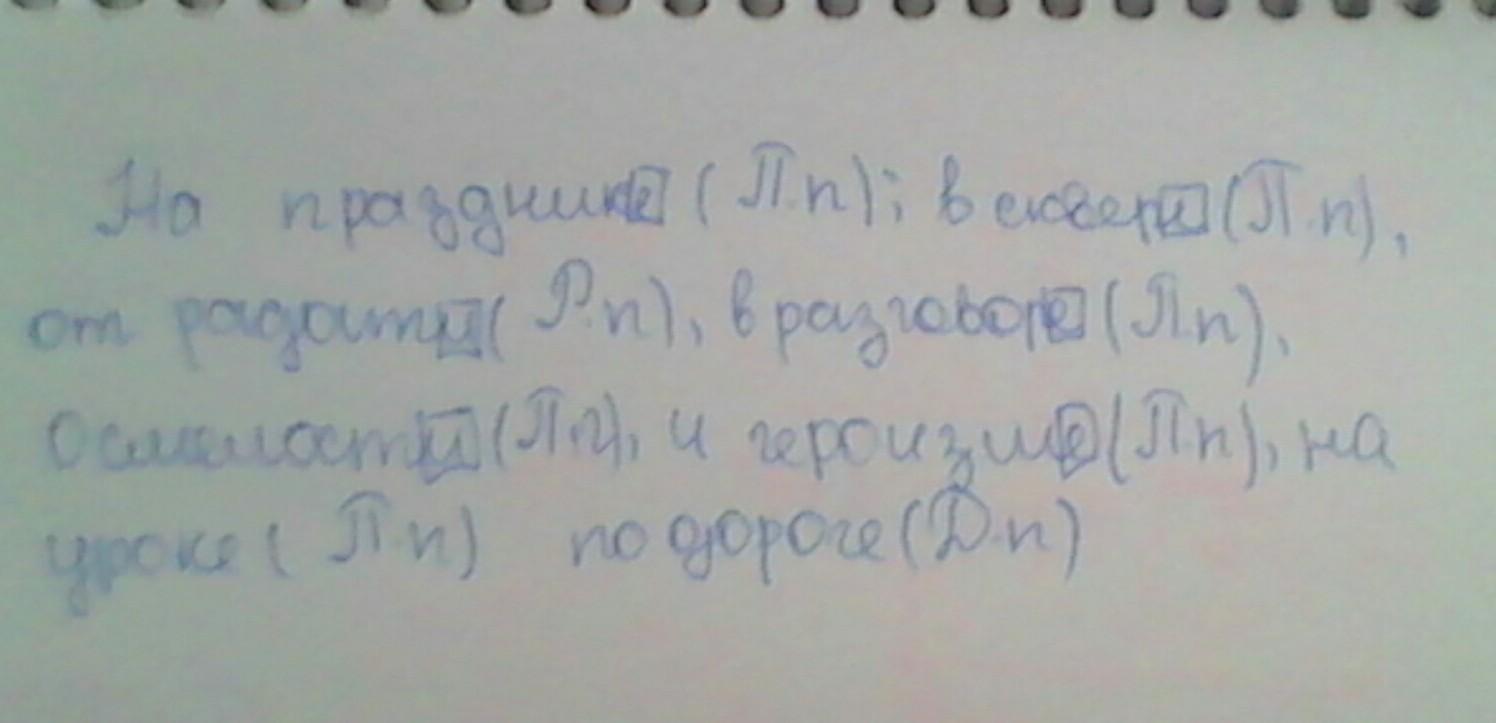 На празднике (П.п); в скатерти (П.п),
от радости (Р.п), в разговоре (П.п),
О смелости (П.п), и героизме (П.п), на
уроке (П.п) по дороге (Д.п)